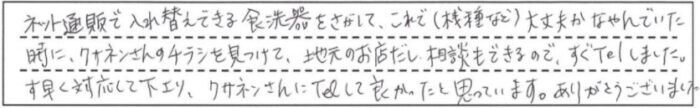 ネット通販で入れ替えできる食洗器をさがして、これで(機種など)大丈夫かなやんでいた
時に、クサネンさんのチラシを見つけて、地元のお店だし相談もできるので、すぐTelしました。
す早く対応して下エり、クサネンさんにTelして良かったと思っています。ありがとうございます